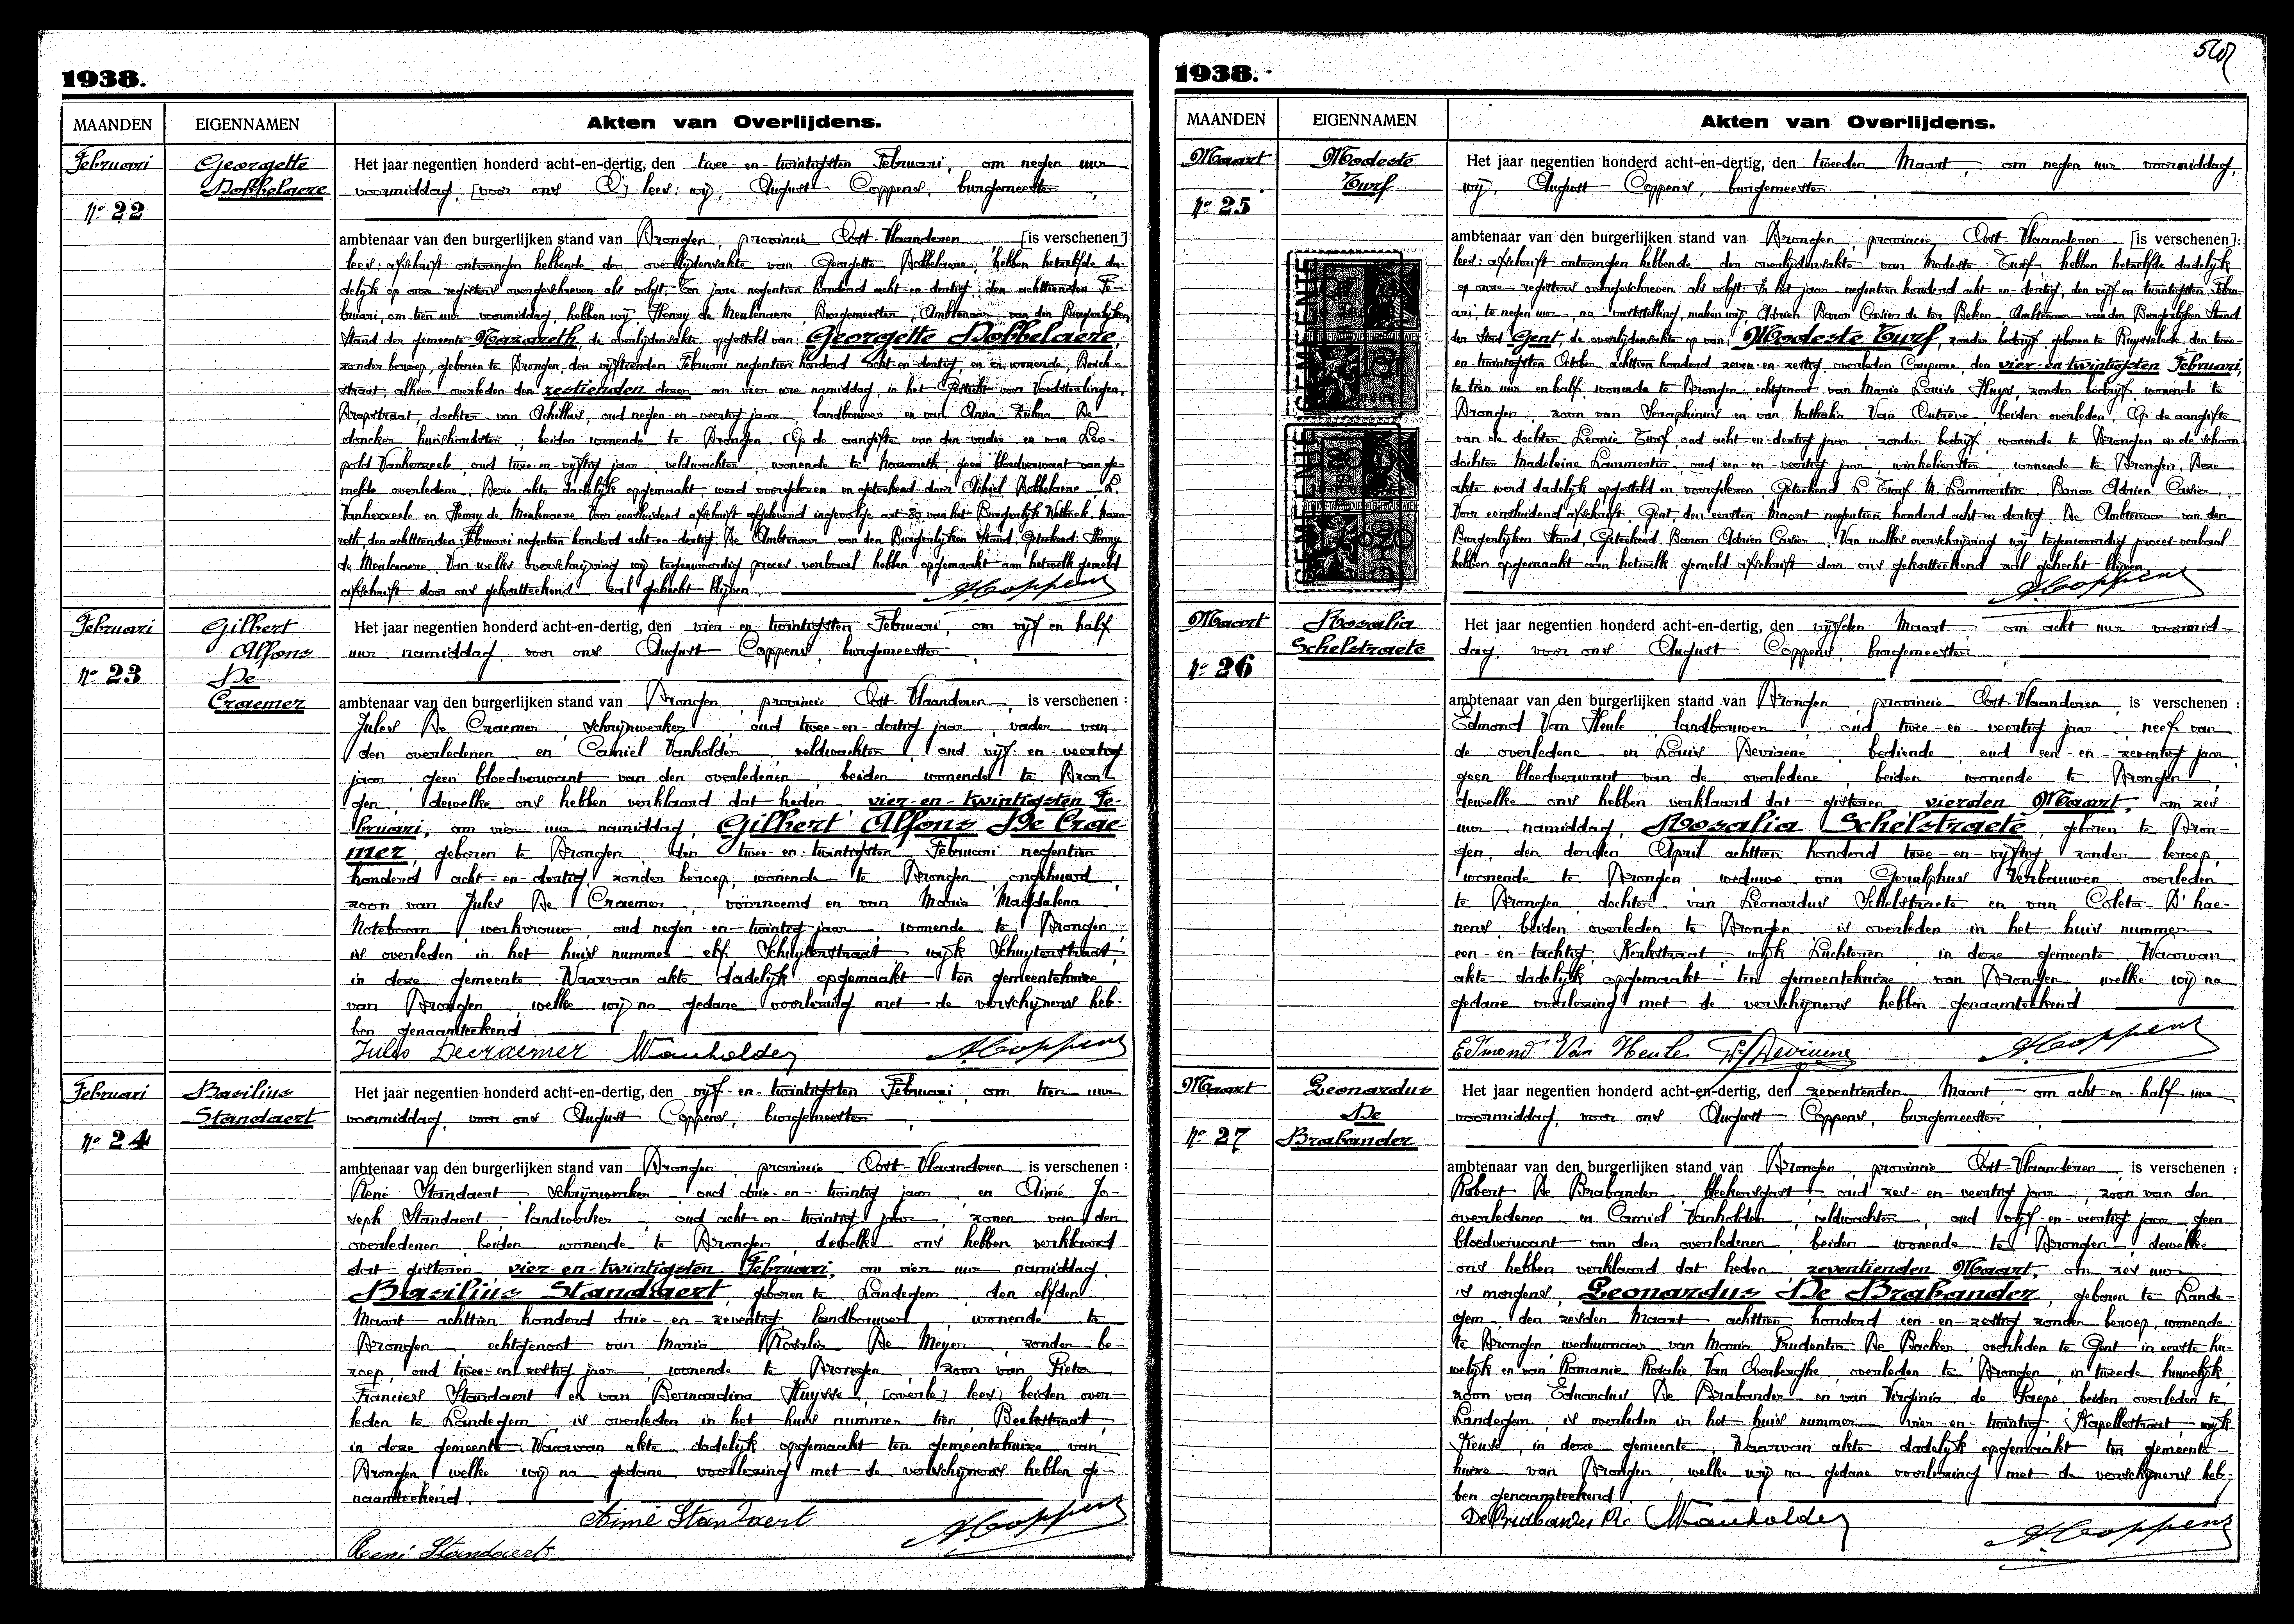 1938.
MAANDEN EIGENNAMEN Akten van Overlijdens.
Februari
Nº 22
Georgette
Dobbelaere
Het jaar negentien honderd acht-en-dertig, den twee-en-twintigsten Februari, om negen uur
voormiddag, [voor ons C] lees: wij, August Coppens, burgemeester,
ambtenaar van den burgerlijken stand van Drongen, provincie Oost-Vlaanderen [is verschenen]
lees: afschrift ontvangen hebbende der overlijdensakte van Georgette Dobbelaere, hebben hetzelfde da-
delijk op onze registers overgeschreven als volgt: Ten jare negentien honderd acht-en-dertig, den achttienden Fe-
bruari, om tien uur voormiddag, hebben wij Henry de Meulenaere Burgemeester, Ambtenaar van den Burgerlijken
Stand der gemeente Nazareth, de overlijdensakte opgesteld van: Georgette Dobbelaere,
zonder beroep, geboren te Drongen, den vijftienden Februari negentien honderd acht-en-dertig, en er wonende, Bosch-
straat, alhier overleden den zestienden dezer om vier ure namiddag, in het Gesticht voor Voedsterlingen,
Drapstraat, dochter van Achillus, oud negen-en-veertig jaar, landbouwer en van Anna Zulma De
doncker huishoudster; beiden wonende te Drongen. Op de aangifte van den vader en van Leo-
pold Vanherzeele, oud twee-en-vijftig jaar, veldwachter, wonende te Nazareth, geen bloedverwant van ge-
melde overledene. Deze akte dadelijk opgemaakt, werd voorgelezen en geteekend door Achiel Dobbelaere, L.
Vanherzeele en Henry de Meulenaere. Voor eensluidend afschrift afgeleverd ingevolge art. 80 van het Burgerlijk Wetboek, Naza-
reth, den achttienden Februari negentien honderd acht-en-dertig. De Ambtenaar van den Burgerlijken Stand, Geteekend: Henry
de Meulenaere. Van welke overschrijving wij tegenwoordig proces-verbaal hebben opgemaakt aan hetwelk gemeld
afschrift door ons gekortteekend zal gehecht blijven.
A. Coppens
Februari
Nº 23
Gilbert
Alfons
De
Craemer
Het jaar negentien honderd acht-en-dertig, den vier-en-twintigsten Februari, om vijf en half
uur namiddag, voor ons August Coppens, burgemeester
ambtenaar van den burgerlijken stand van Drongen, provincie Oost-Vlaanderen, is verschenen :
Jules De Craemer, schrijnwerker, oud twee-en-dertig jaar, vader van
den overledenen en Camiel Vanholder, veldwachter, oud vijf-en-veertig
jaar geen bloedverwant van den overledenen, beiden wonende te Dron-
gen, dewelke ons hebben verklaard dat heden vier-en-twintigsten Fe-
bruari, om vier uur namiddag, Gilbert Alfons De Crae-
mer, geboren te Drongen, den twee-en-twintigsten Februari negentien
honderd acht-en-dertig, zonder beroep, wonende te Drongen, ongehuwd,
zoon van Jules De Craemer, voornoemd en van Maria Magdalena
Noteboom, werkvrouw, oud negen-en-twintig jaar, wonende te Drongen,
is overleden in het huis nummer elf, Schuyterstraat, wijk Schuyterstraat,
in deze gemeente. Waarvan akte dadelijk opgemaakt ten gemeentehuize
van Drongen, welke wij na gedane voorlezing met de verschijners heb-
ben genaamteekend.
Jules Decraemer Vanholder A. Coppens
Februari
Nº 24
Basilius
Standaert
Het jaar negentien honderd acht-en-dertig, den vijf-en-twintigsten Februari, om tien uur
voormiddag, voor ons August Coppens, burgemeester
ambtenaar van den burgerlijken stand van Drongen, provincie Oost-Vlaanderen, is verschenen :
René Standaert, schrijnwerker, oud drie-en-twintig jaar, en Aimé Jo-
seph Standaert, landwerker, oud acht-en-twintig jaar, zonen van den
overledenen, beiden wonende te Drongen, dewelke ons hebben verklaard
dat gisteren, vier-en-twintigsten Februari, om vier uur namiddag,
Basilius Standaert, geboren te Landegem, den elfden
Maart achttien honderd drie-en-zeventig, landbouwer, wonende te
Drongen, echtgenoot van Maria Rosalia De Meyer, zonder be-
roep, oud twee-en-zestig jaar, wonende te Drongen, zoon van Pieter
Francies Standaert en van Bernardina Huysse, [overle] lees: beiden over-
leden te Landegem, is overleden in het huis nummer tien, Beekstraat,
in deze gemeente. Waarvan akte dadelijk opgemaakt ten gemeentehuize van
Drongen, welke wij na gedane voorlezing met de verschijners hebben ge-
naamteekend.
Aimé Standaert A. Coppens
René Standaert
1938.
MAANDEN EIGENNAMEN Akten van Overlijdens.
Maart
Nº 25
Modeste
Turf
Het jaar negentien honderd acht-en-dertig, den tweeden Maart, om negen uur voormiddag,
wij, August Coppens, burgemeester
ambtenaar van den burgerlijken stand van Drongen, provincie Oost-Vlaanderen [is verschenen]:
lees: afschrift ontvangen hebbende der overlijdensakte van Modeste Turf hebben hetzelfde dadelijk
op onze registers overgeschreven als volgt: In het jaar negentien honderd acht-en-dertig, den vijf-en-twintigsten Febru-
ari, te negen uur, na vaststelling, maken wij, Adrien Baron Casier de ter Beken, Ambtenaar van den Burgerlijken Stand
der Stad Gent, de overlijdensakte op van: Modeste Turf, zonder bedrijf, geboren te Ruysselede, den twee-
en-twintigsten October achttien honderd zeven-en-zestig, overleden Coupure, den vier-en-twintigsten Februari,
te tien uur en half, wonende te Drongen, echtgenoot van Marie Louise Huys, zonder bedrijf, wonende te
Drongen, zoon van Seraphinus en van Nathalia Van Outrève, beiden overleden. Op de aangifte
van de dochter Leonie Turf, oud acht-en-dertig jaar, zonder bedrijf, wonende te Drongen en de schoon-
dochter Madeleine Lammertin, oud een-en-veertig jaar, winkelierster, wonende te Drongen. Deze
akte werd dadelijk opgesteld en voorgelezen. Geteekend L. Turf M. Lammertin. Baron Adrien Casier.
Voor eensluidend afschrift. Gent den eersten Maart negentien honderd acht-en-dertig. De Ambtenaar van den
Burgerlijken Stand, Geteekend Baron Adrien Casier. Van welke overschrijving wij tegenwoordig proces-verbaal
hebben opgemaakt aan hetwelk gemeld afschrift door ons gekortteekend zal gehecht blijven.
A. Coppens
GEMEENTE
GEMEENTE
Maart
Nº 26
Rosalia
Schelstraete
Het jaar negentien honderd acht-en-dertig, den vijfden Maart, om acht uur voormid-
dag, voor ons August Coppens, burgemeester
ambtenaar van den burgerlijken stand van Drongen, provincie Oost-Vlaanderen, is verschenen :
Edmond Van Heule, landbouwer, oud twee-en-veertig jaar, neef van
de overledene en Louis Devisene, bediende, oud een-en-zeventig jaar,
geen bloedverwant van de overledene, beiden wonende te Drongen,
dewelke ons hebben verklaard dat gisteren, vierden Maart, om zes
uur namiddag, Rosalia Schelstraete, geboren te Dron-
gen, den derden April achttien honderd twee-en-vijftig, zonder beroep,
wonende te Drongen, weduwe van Gerulphus Verbauwen, overleden
te Drongen, dochter van Leonardus Schelstraete en van Coleta D'hae-
nens, beiden overleden te Drongen, is overleden in het huis nummer
een-en-tachtig, Kerkstraat, wijk Luchteren, in deze gemeente. Waarvan
akte dadelijk opgemaakt ten gemeentehuize van Drongen, welke wij na
gedane voorlezing met de verschijners hebben genaamteekend.
Edmond Van Heule A. Coppens
Maart
Nº 27
Leonardus
De
Brabander
Het jaar negentien honderd acht-en-dertig, den zeventienden Maart, om acht-en-half uur
voormiddag, voor ons August Coppens, burgemeester
ambtenaar van den burgerlijken stand van Drongen, provincie Oost-Vlaanderen, is verschenen :
Robert De Brabander, bleekersgast, oud zes-en-veertig jaar, zoon van den
overledenen en Camiel Vanholder, veldwachter, oud vijf-en-veertig jaar, geen
bloedverwant van den overledenen, beiden wonende te Drongen, dewelke
ons hebben verklaard dat heden, zeventienden Maart, om zes uur
's morgens, Leonardus De Brabander, geboren te Lande-
gem, den zesden Maart achttien honderd een-en-zestig zonder beroep, wonende
te Drongen, weduwnaar van Maria Prudentia De Backer, overleden te Gent in eerste hu-
welijk en van Romanie Rosalie Van Overberghe, overleden te Drongen, in tweede huwelijk,
zoon van Eduardus De Brabander en van Virginia de Paepe, beiden overleden te
Landegem, is overleden in het huis nummer vier-en-twintig, Kapellestraat, wijk
Keuze, in deze gemeente. Waarvan akte dadelijk opgemaakt ten gemeente-
huize van Drongen, welke wij na gedane voorlezing met de verschijners heb-
ben genaamteekend.
De Brabander Vanholder A. Coppens